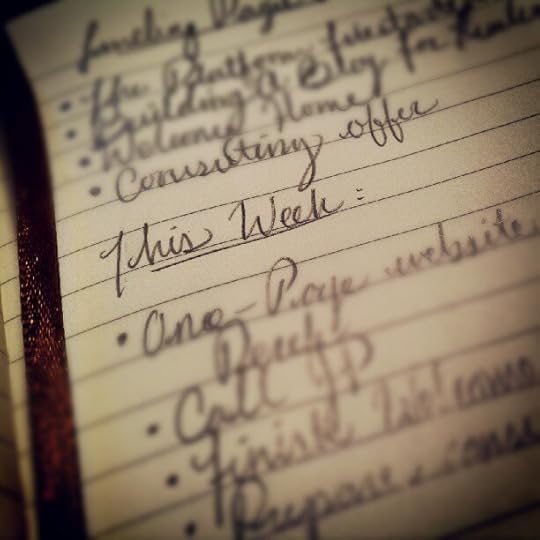 Landing Pages
• The Platform
• Building A Blog for
• Welcome Home
• Consulting offer
This Week:
• One-Page website
• Call JP
• Finish Welcome
• Prepare